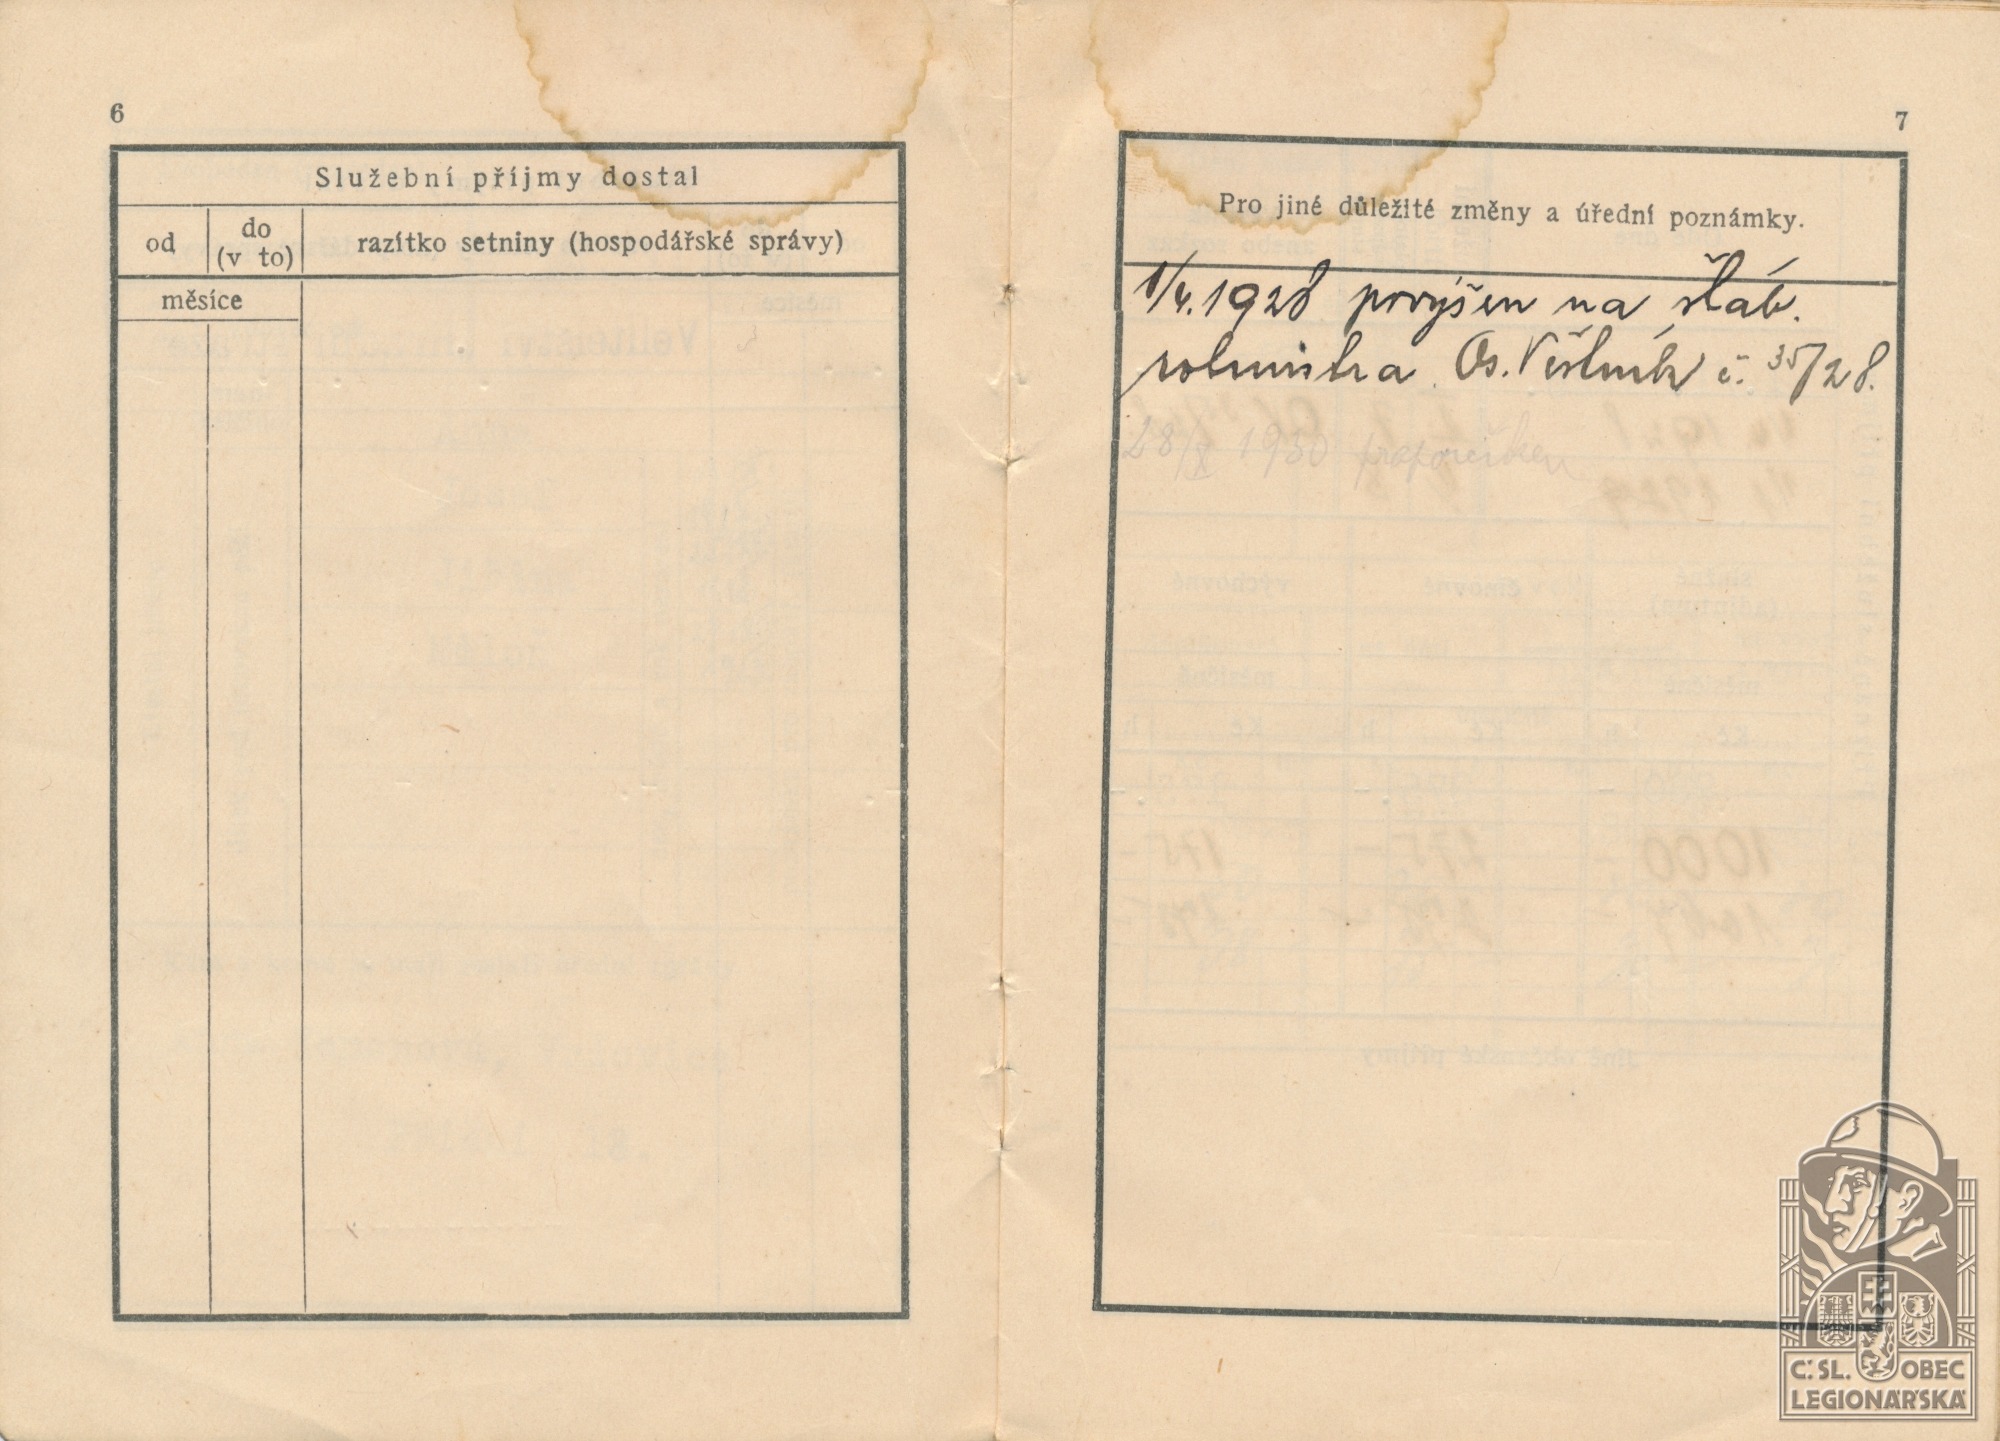 6
Služební příjmy dostal
od
do
(v to)
razítko setniny (hospodářské správy)
měsíce
7
Pro jiné důležité změny a úřední poznámky.
1/4. 1928 povýšen na štáb.
rotmistra. Os. Věstník č. 35/28.
28/X 1930
Č. SL. OBEC
LEGIONÁŘSKÁ